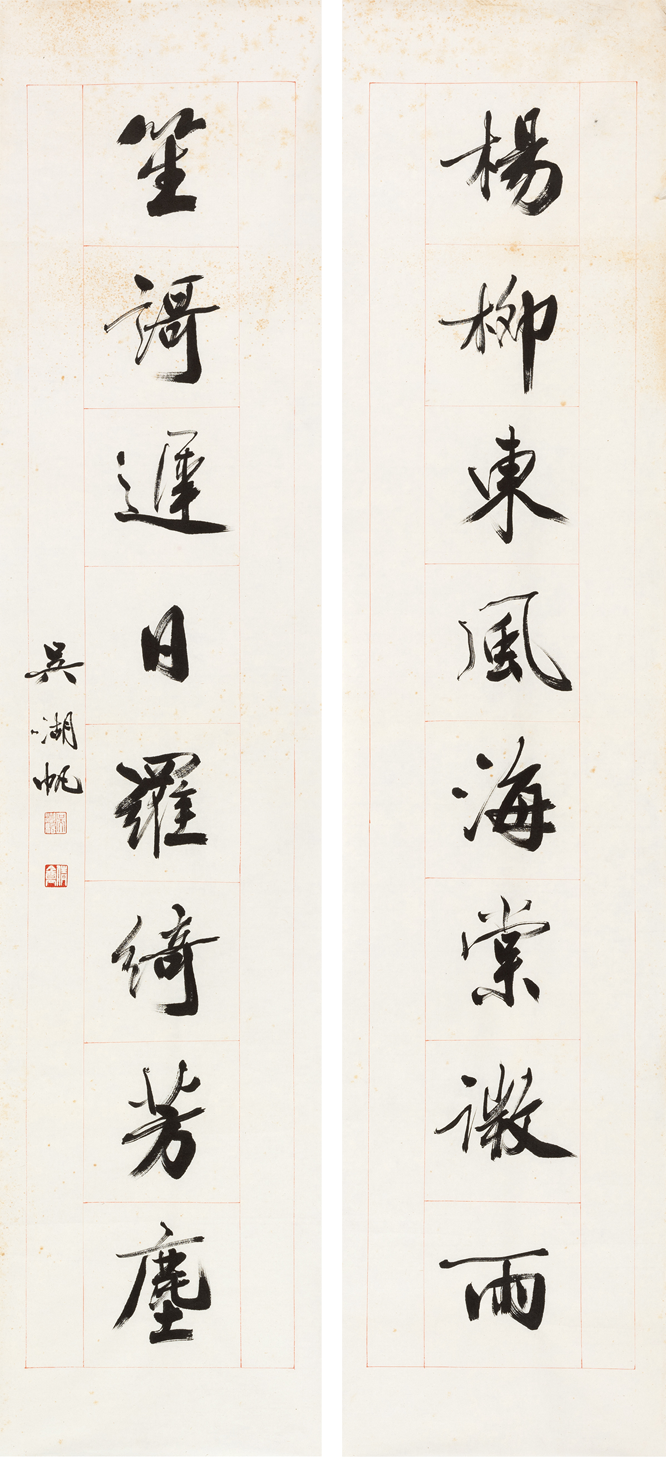 楊柳東風海棠微雨
笙謌遲日羅綺芳塵
吳湖帆